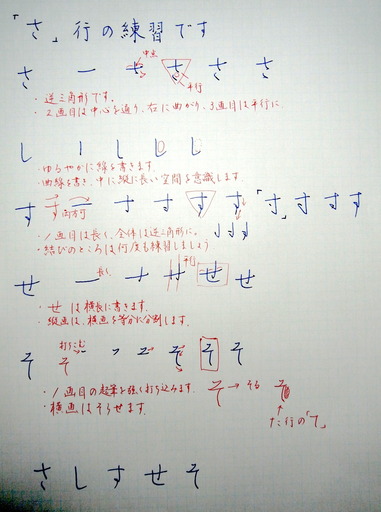 「さ」行の練習です
中点
さ 一 さ さ さ さ
平行
・逆三角形です。
・2画目は中心を通り、右に曲がり、3画目は平行に。
し 丨 し し し
・ゆるやかに線を書きます
・曲線を書き、中に縦に長い空間を意識します
す 両方可 一 す す す す 「寸」 す す す
・1画目は長く、全体は逆三角形に。
・結びのところは何度も練習しましょう
長く 平行
せ 一 ナ せ せ せ
・せは横長に書きます。
・縦画は、横画を等分に分割します。
打ちこむ
そ そ フ そ そ そ
・1画目の起筆を強く打ち込みます。
・横画はそらせます
そ → そる そ
た行の「て」
さ し す せ そ